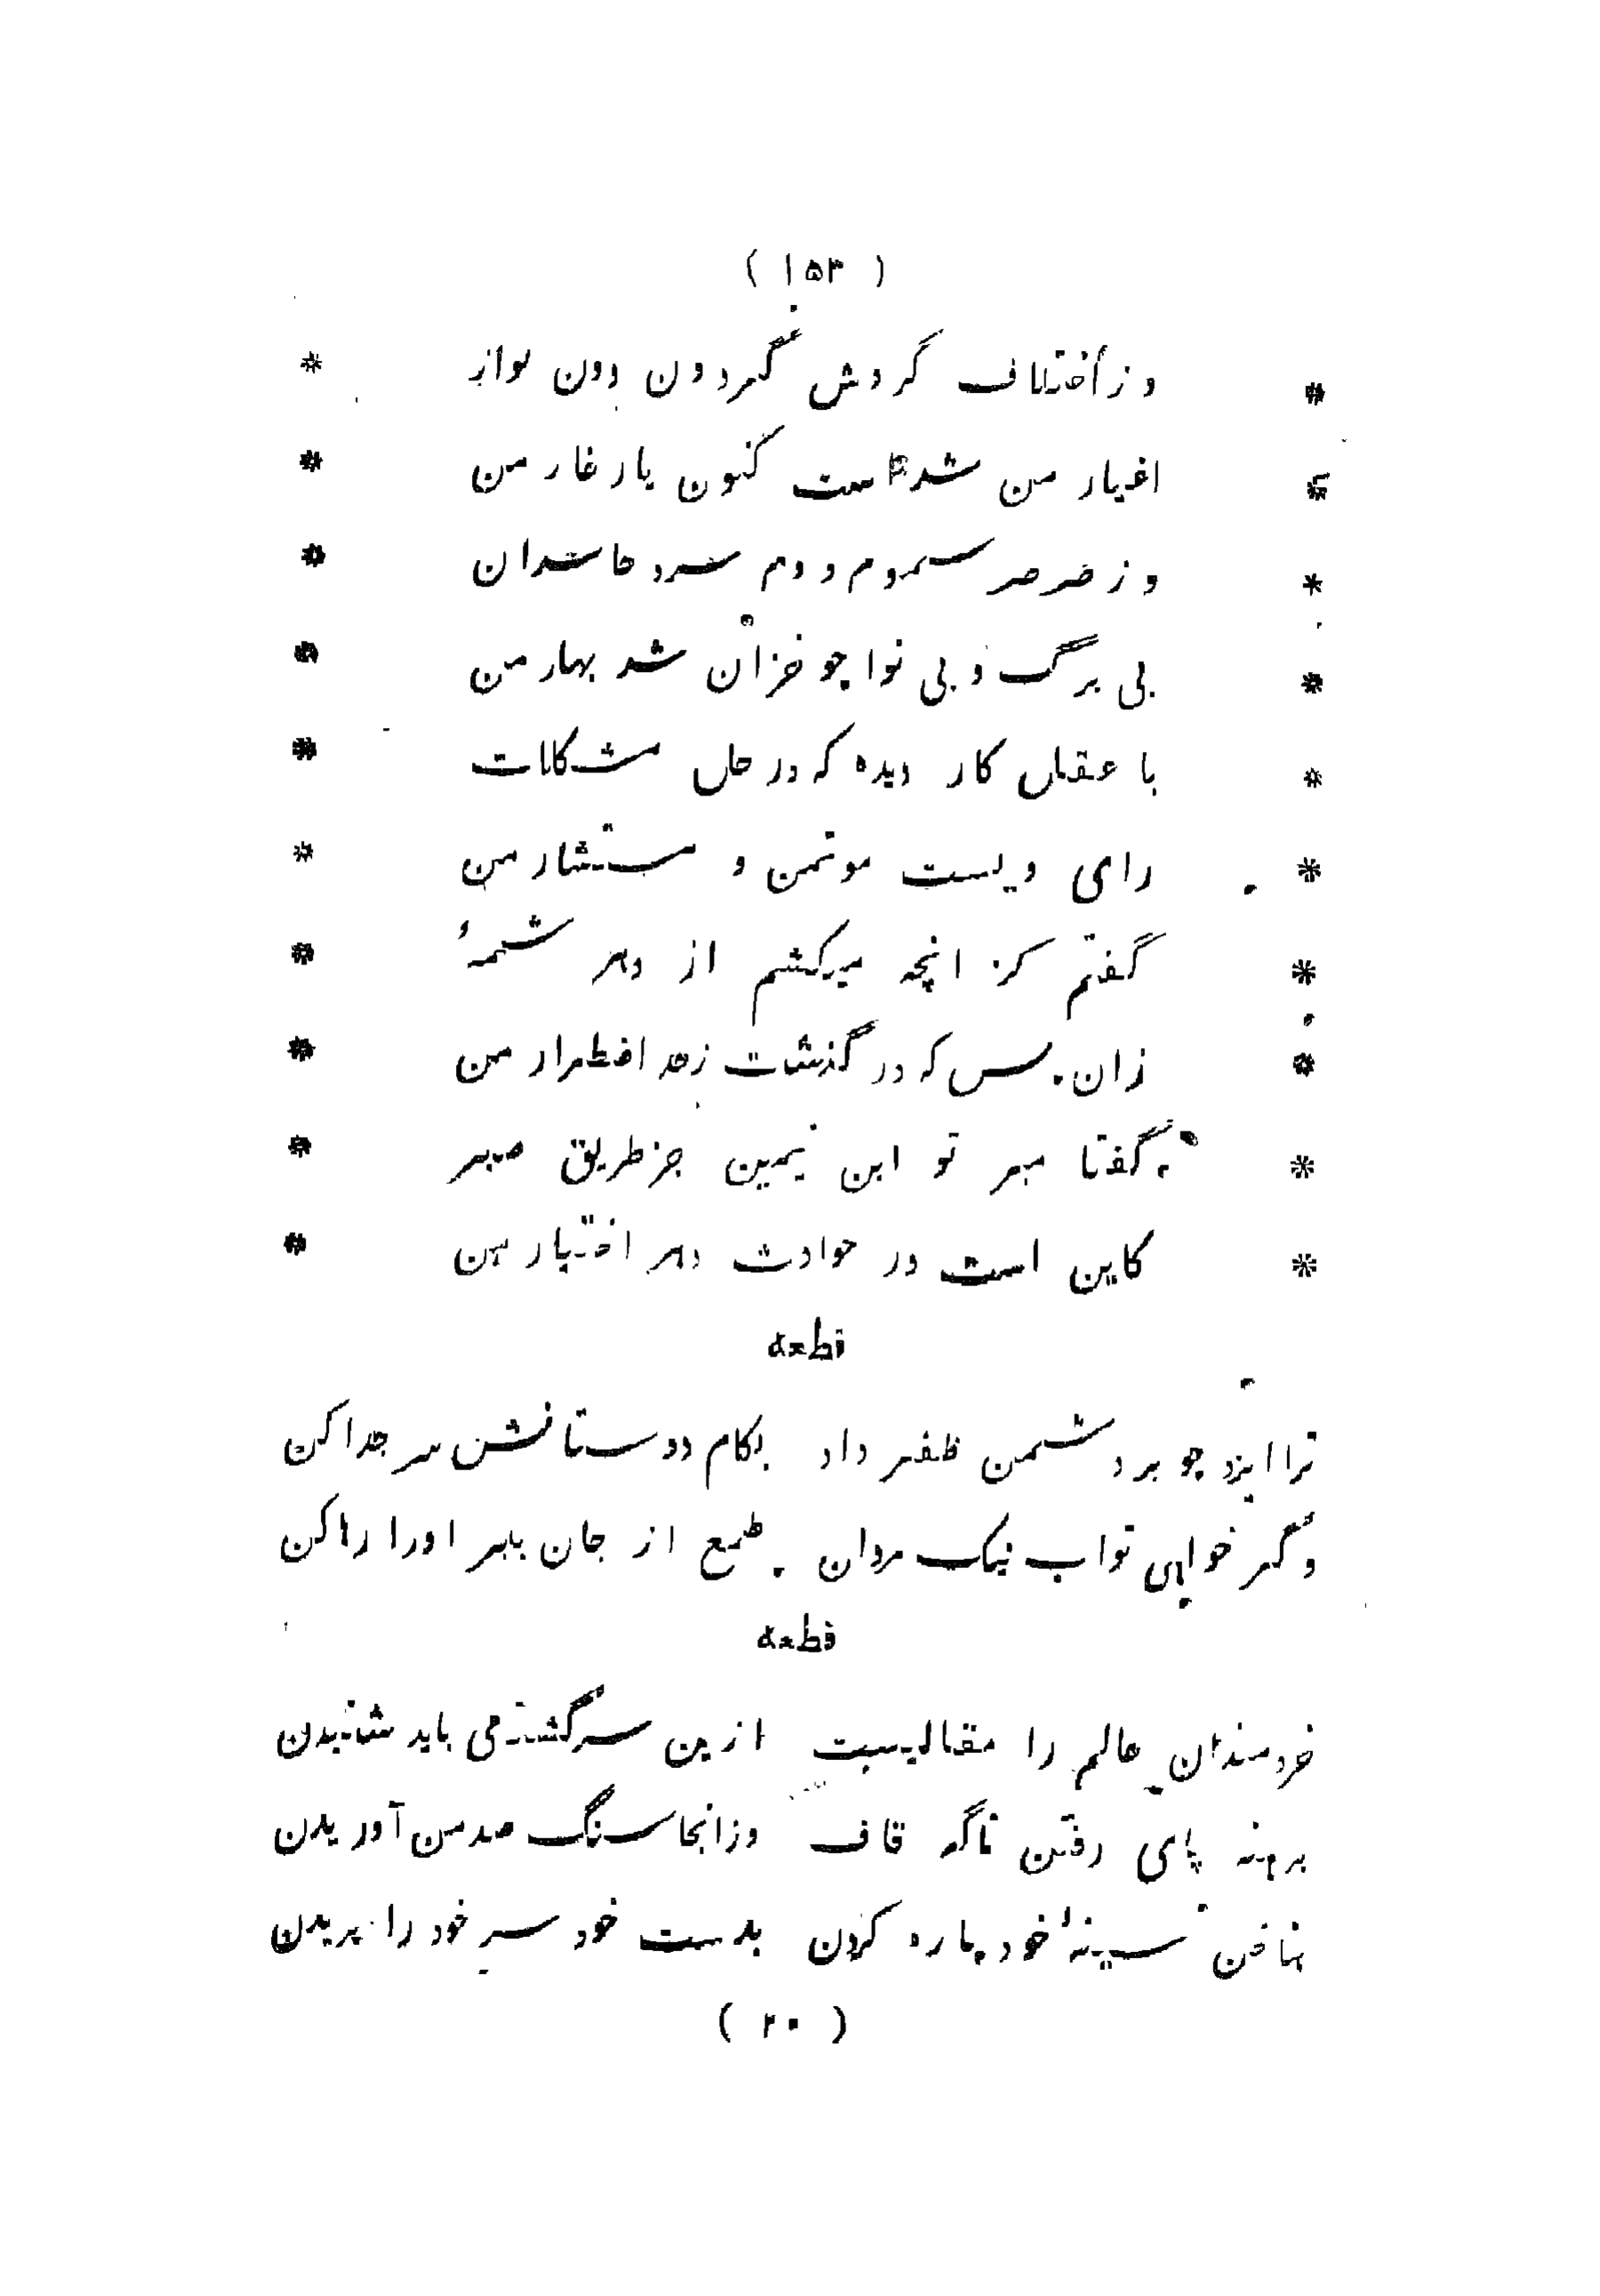 ( ۱۵۳ )
* وز اختلاف گردش گردون دون نواز *
* اغیار من شده است کنون یار غار من *
* وز صرصر سموم و دم سرد حاسدان *
* بی برگ و بی نوا چو خزان شد بهار من *
* با عقل کار دیده که در حل مشکلات *
* رای ویست موتمن و مستشار من *
* گفتم کز انچه میکشم از دهر شمهٔ *
* زان پس که در گذشت زحد اضطرار من *
* گفتا مبر تو ابن یمین جز طریق صبر *
* کاین است در حوادث دهر اختیار من *
قطعه
ترا ایزد چو بر دشمن ظفر داد بکام دوستانش سر جدا کن
وگر خواهی ثواب نیک مردان طمع از جان ببر اورا رها کن
قطعه
خردمندان عالم را مقالیست ازین سرگشته می باید شنیدن
برهنه پای رفتن تا که قاف وزانجا سنگ صد من آوریدن
بناخن سینهٔ خود پاره کردن بدست خود سر خود را بریدن
( ۲۰ )